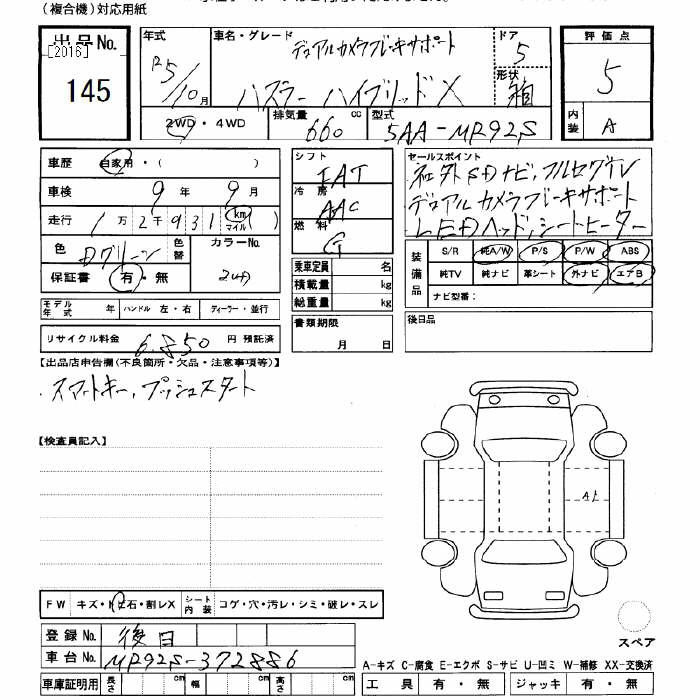 (複合機)対応用紙
出品No.
[2016]
145
年式 R5/10月
車名・グレード デュアルカメラブレーキサポート
ハスラー ハイブリッドX
ドア 5
形状 箱
評価点 5
内装 A
2WD・4WD
排気量 660 cc
型式 5AA-MR92S
車歴 自家用・( )
車検 9年 9月
走行 1万2千931 km マイル
色 Dグリーン 色替 カラーNo.
保証書 有・無 ZUD
モデル年式 年 ハンドル 左・右 ディーラー・並行
リサイクル料金 6.850 円 預託済
シフト FAT
冷房 AAC
燃料 G
乗車定員 名
積載量 kg
総重量 kg
書類期限
月 日
セールスポイント
社外SDナビ,フルセグTV
デュアルカメラブレーキサポート
LEDヘッド,シートヒーター
装備品 S/R 純A/W P/S P/W ABS
純TV 純ナビ 革シート 外ナビ エアB
ナビ型番:
後日品
【出品店申告欄(不良箇所・欠品・注意事項等)】
・スマートキー,プッシュスタート
【検査員記入】
A1
FW キズ・ト石・割レX シート内装 コゲ・穴・汚レ・シミ・破レ・スレ
登録No. 後日
車台No. MR92S-372886
車庫証明用 長さ cm 幅 cm 高さ cm
スペア
A-キズ C-腐食 E-エクボ S-サビ U-凹ミ W-補修 XX-交換済
工具 有・無 ジャッキ 有・無